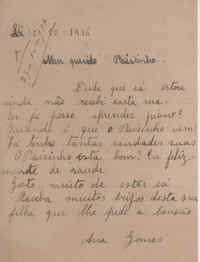 10-1936
Meu querido Paisinho.
Desde que cá estou
ainda não recebi carta sua.
Já posso aprender piano?
Quando é que o Paisinho vem?
Já tenho tantas saudades suas
O Paisinho está bom? Eu feliz-
mente de saude.
Gosto muito de estar cá
Receba muitos beijos desta sua
filha que lhe pede a benção
Gomes